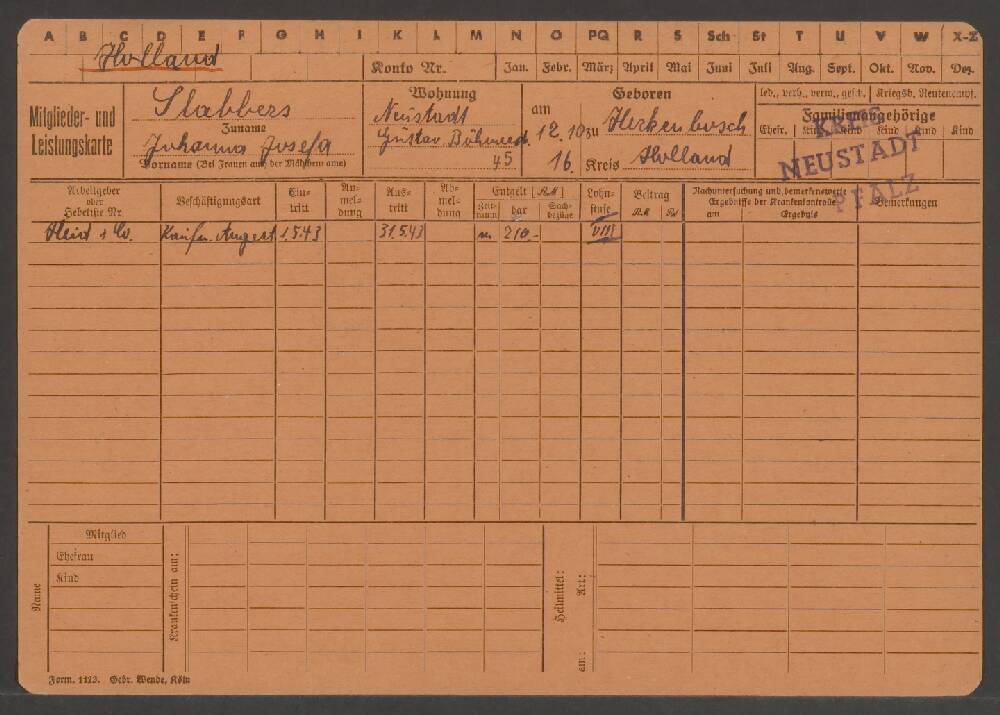 A B C D E F G H I K L M N O PQ R S Sch St T U V W X-Z
Holland
Konto Nr. Jan. Febr. März April Mai Juni Juli Aug. Sept. Okt. Nov. Dez.
Mitglieder- und Leistungskarte
Slabbers
Zuname
Johanna Josefa
Vorname (Bei Frauen auch der Mädchenname)
Wohnung
Neustadt
Gustav Böhm
45
Geboren
am 12.10. zu Herkenbosch
16. Kreis Holland
led., verh., verw., gesch. Kriegsb. Rentenempf.
Familienangehörige
Ehefr. Kind Kind Kind Kind Kind
KREIS
NEUSTADT
PFALZ
Arbeitgeber oder Hebeliste Nr. Beschäftigungsart Ein-tritt An-mel-dung Aus-tritt Ab-mel-dung Entgelt [RM] Zeit-raum bar Sach-bezüge Lohn-stufe Beitrag RM Pf Nachuntersuchung und bemerkenswerte Ergebnisse der Krankenkontrolle am Ergebnis Bemerkungen
Heid + Co. Kaufm. Angest. 1.5.43 31.5.43 m. 210.- VIII
Name
Mitglied
Ehefrau
Kind
Krankenschein am:
Heilmittel:
Art:
am:
Form. 1123. Gebr. Wende, Köln